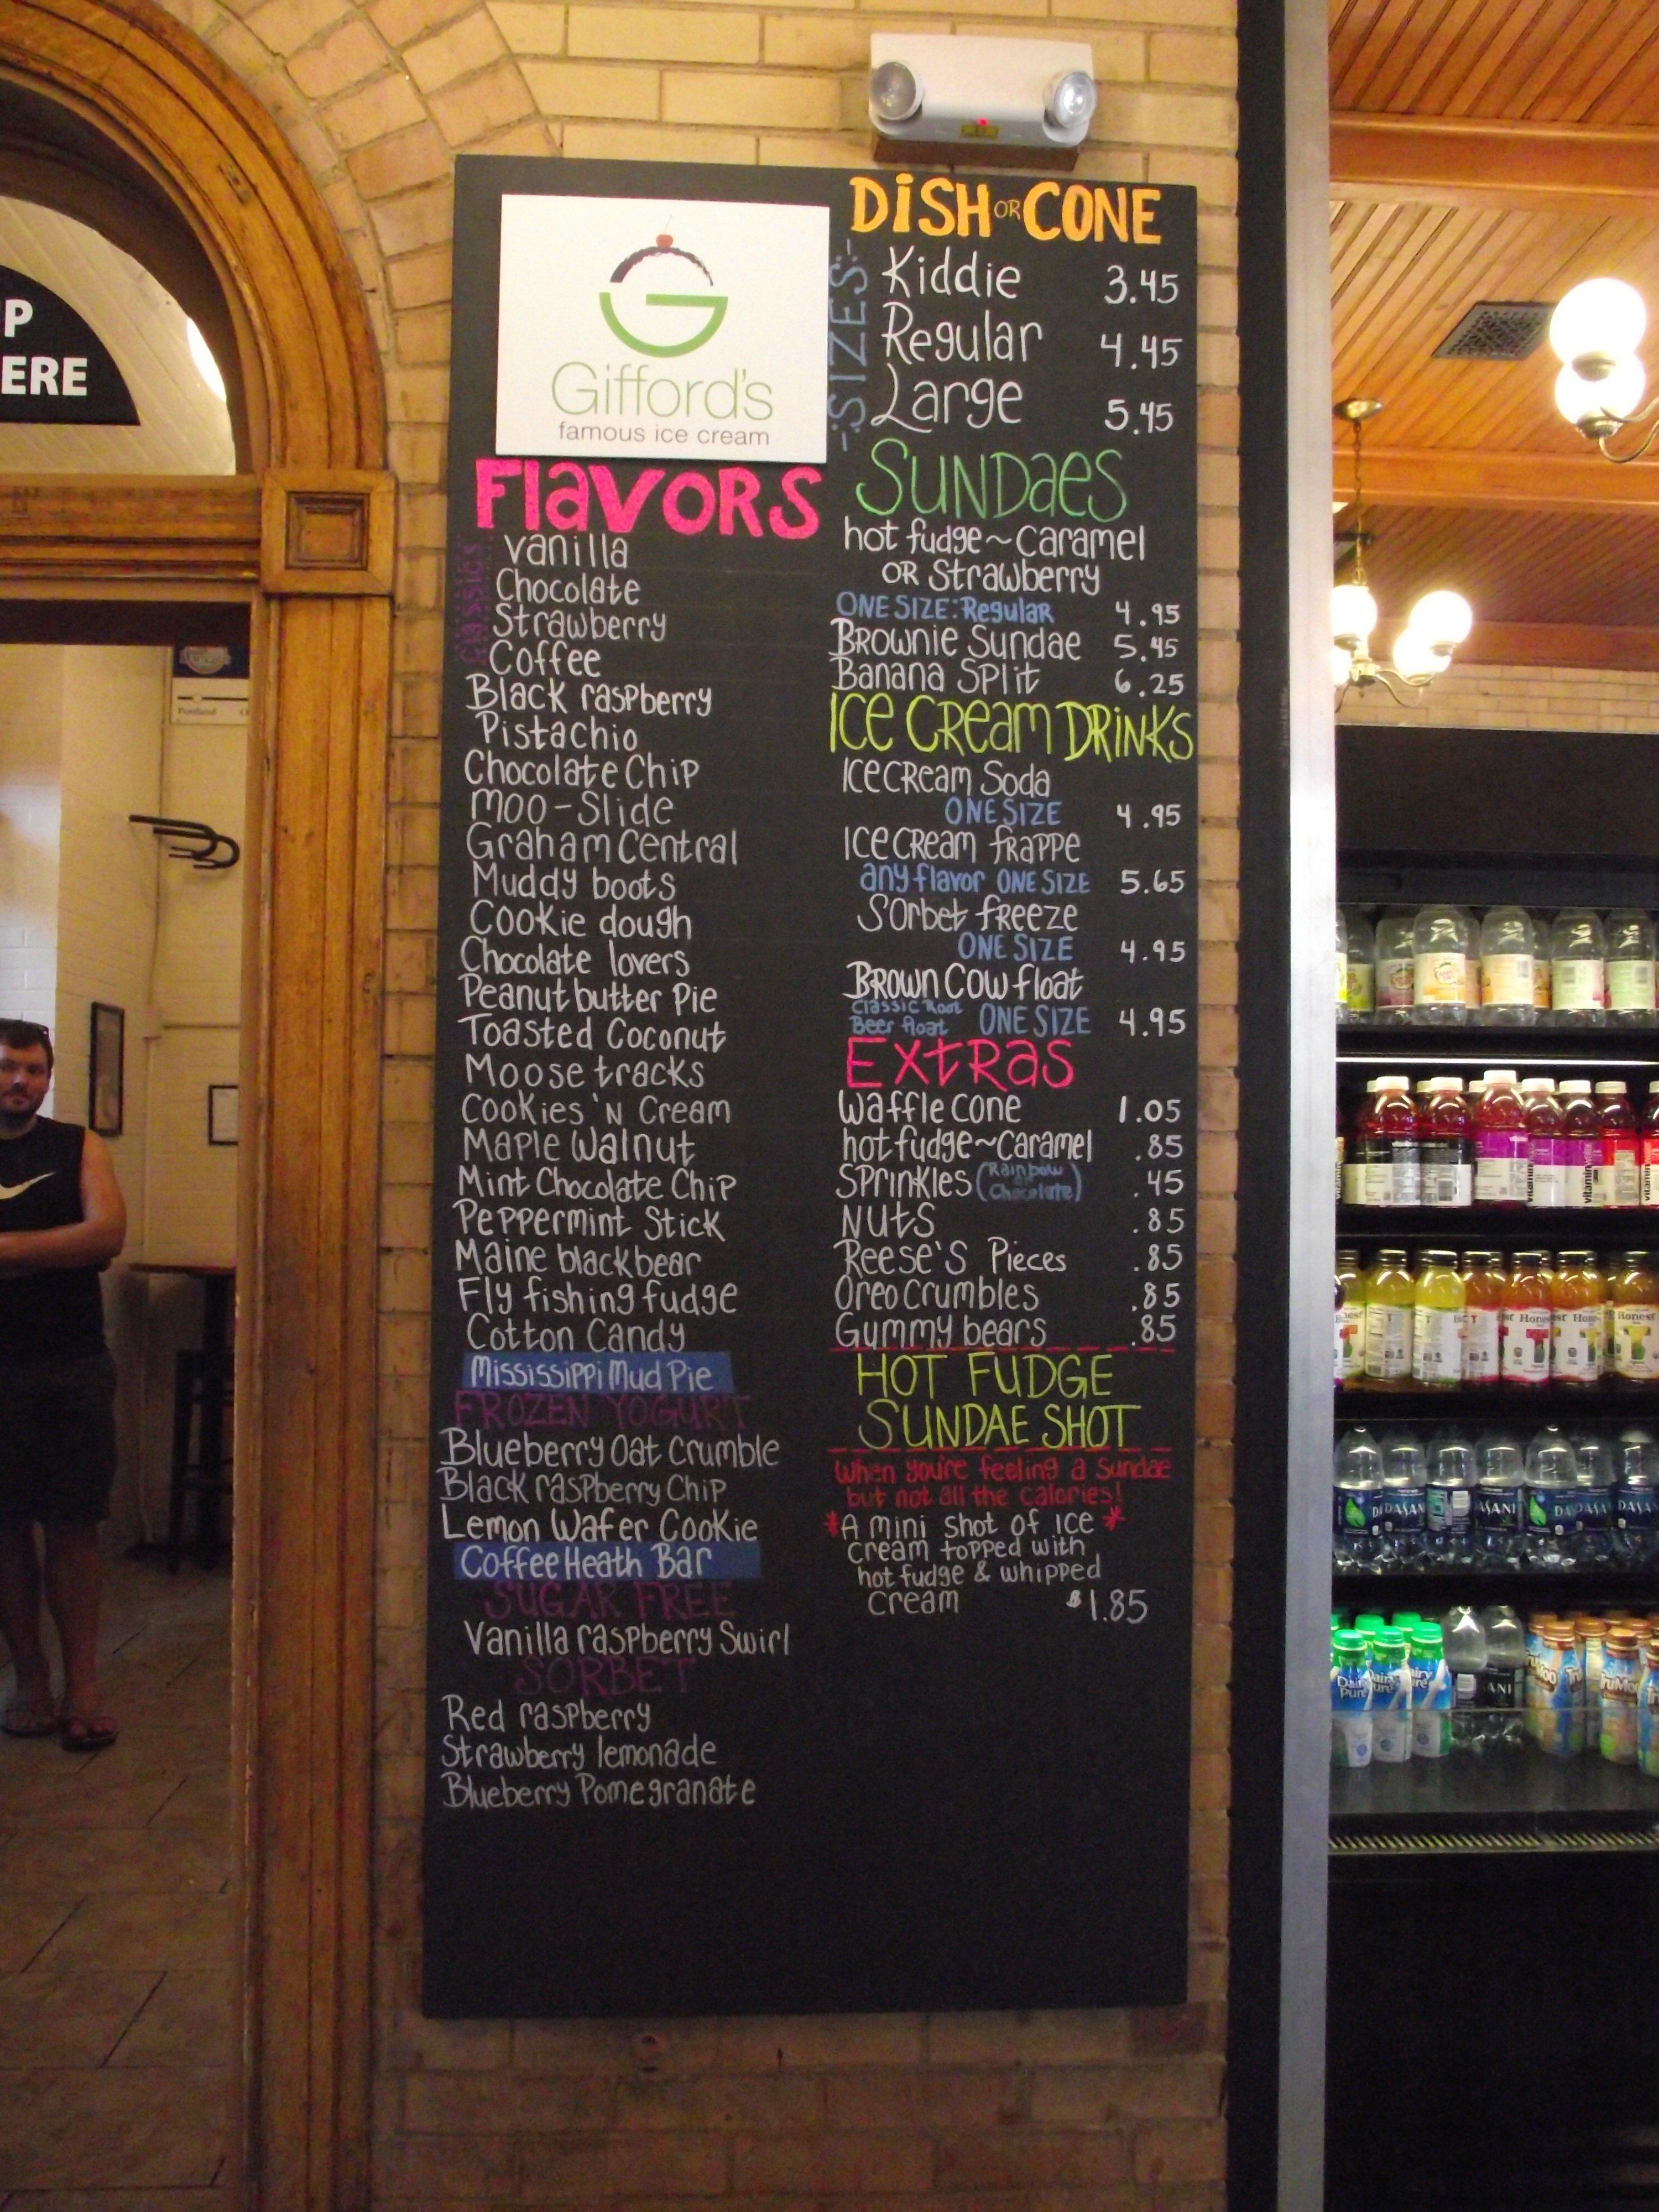 P
ERE
Gifford's
famous ice cream
FlavORS
Classics
Vanilla
Chocolate
Strawberry
Coffee
Black raspberry
Pistachio
Chocolate Chip
Moo-Slide
Graham Central
Muddy boots
Cookie dough
Chocolate lovers
Peanut butter Pie
Toasted Coconut
Moose tracks
Cookies 'N Cream
Maple Walnut
Mint Chocolate Chip
Peppermint Stick
Maine black bear
Fly fishing fudge
Cotton Candy
Mississippi Mud Pie
FROZEN YOGURT
Blueberry Oat Crumble
Black raspberry Chip
Lemon Wafer Cookie
Coffee Heath Bar
SUGAR FREE
Vanilla raspberry Swirl
SORBET
Red raspberry
Strawberry lemonade
Blueberry Pomegranate
DiSH OR CONE
-SIZES-
Kiddie 3.45
Regular 4.45
Large 5.45
SUNDaeS
hot fudge~caramel
OR Strawberry
ONE SIZE: Regular 4.95
Brownie Sundae 5.45
Banana Split 6.25
Ice CReam DRiNKS
Ice Cream Soda
ONE SIZE 4.95
Ice Cream frappe
any flavor ONE SIZE 5.65
Sorbet freeze
ONE SIZE 4.95
Brown Cow float
Classic Root
Beer float ONE SIZE 4.95
ExtRas
Waffle cone 1.05
hot fudge~Caramel .85
Sprinkles (Rainbow or Chocolate) .45
NUtS .85
Reese's Pieces .85
Oreo crumbles .85
Gummy bears .85
HOT FUDGE
SUNDAE SHOT
When you're feeling a sundae
but not all the calories!
*A mini shot of ice *
cream topped with
hot fudge & whipped
cream $1.85
Portland
vitamin
vitamin
vitamin
Honest
Honest
Honest
DASANI
DASANI
DASANI
Dairy
Pure
TruMoo